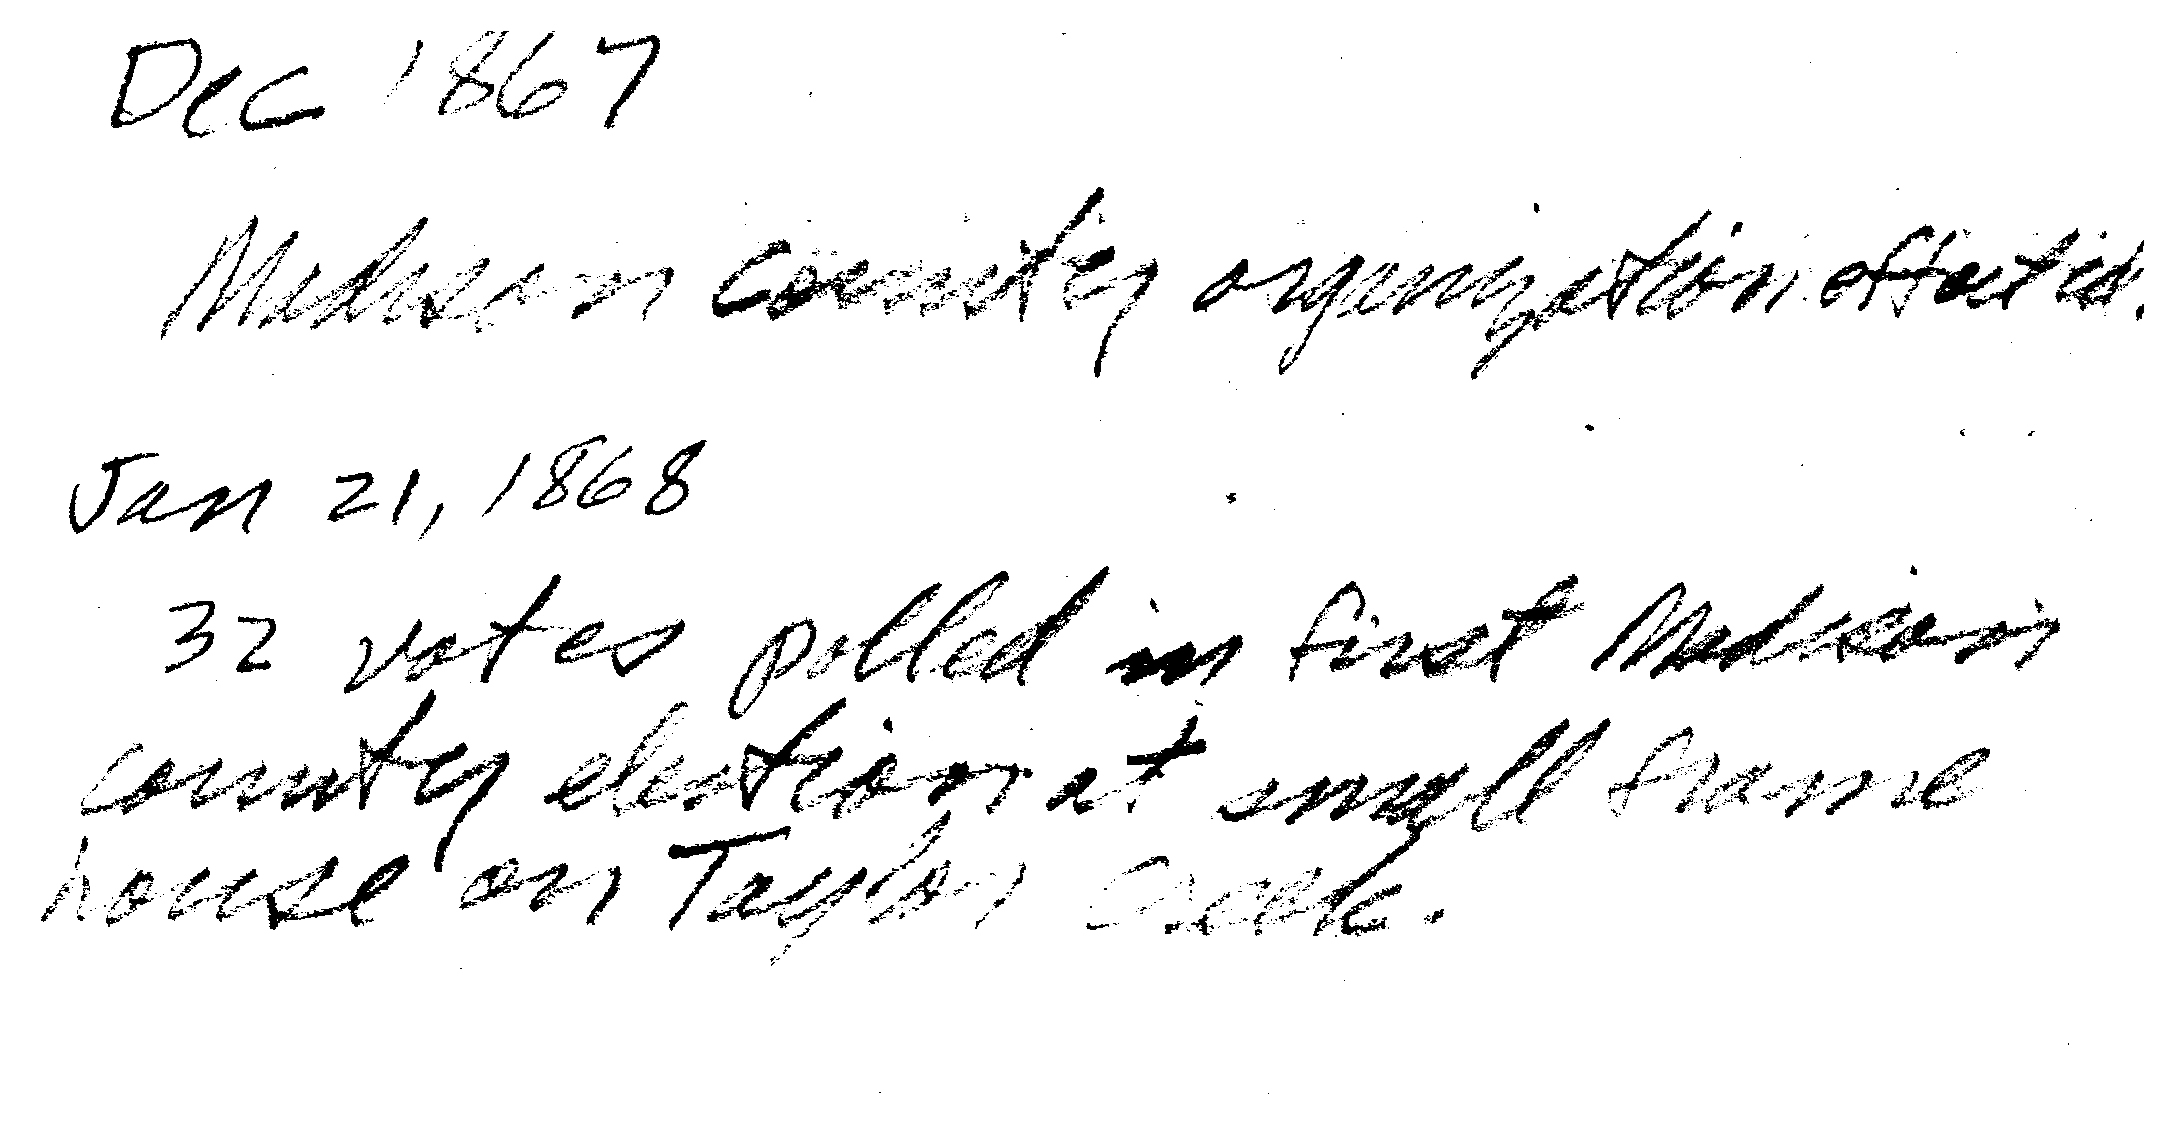 Dec 1867
Madison county organization effected.
Jan 21, 1868
32 votes polled in first Madison
county election at small frame
house on Taylor Creek.